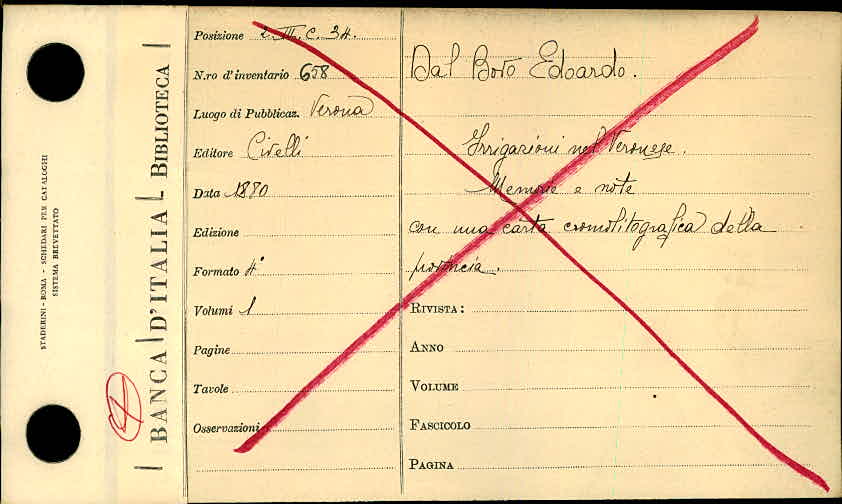 STADERINI - ROMA - SCHEDARI PER CATALOGHI
SISTEMA BREVETTATO
BANCA D'ITALIA - BIBLIOTECA
Posizione 2. III. C. 34.
N.ro d'inventario 658
Luogo di Pubblicaz. Verona
Editore Civelli
Data 1880
Edizione
Formato 4°
Volumi 1
Pagine
Tavole
Osservazioni
Dal Bovo Edoardo.
Irrigazioni nel Veronese.
Memorie e note
con una carta cromolitografica della
provincia.
RIVISTA:
ANNO
VOLUME
FASCICOLO
PAGINA